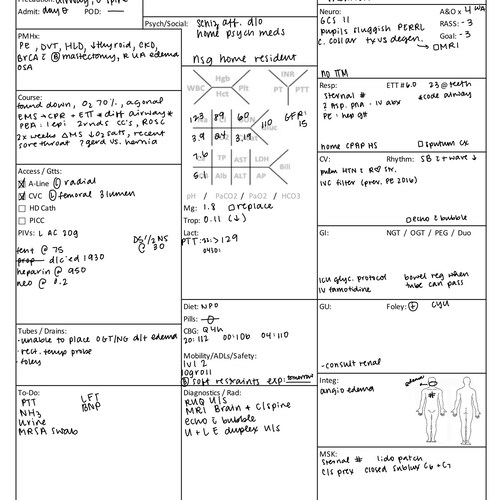 Admit: day 8 POD:
Psych/Social: schiz. aff. d/o
home psych meds
nsg home resident
PMHx:
PE, DVT, HLD, ↓thyroid, CKD,
BRCA c̄ Ⓑ mastectomy, RUA edema
OSA
Course:
found down, O2 70%, agonal
EMS → CPR + ETT c̄ diff airway*
PEA: 1 epi 2 rnds CC's, ROSC
2x weeks ΔMS ↓O2 sats, recent
sore throat ? gerd vs. hernia
Access / Gtts:
A-Line Ⓛ radial
CVC Ⓛ femoral 3 lumen
HD Cath
PICC
PIVs: L AC 20g
D5 1/2 NS
@ 30
fent @ 75
prop dlc'ed 1930
heparin @ 950
neo @ 0.2
Tubes / Drains:
-unable to place OGT/NG d/t edema
-rect. temp probe
-foley
To-Do:
PTT LFT
NH3 BNP
Urine
MRSA swab
WBC Hgb Plt
Hct
INR
PT PTT
123 89 60 110
3.9 24 3.19
GFR:
15
7.6 TP AST LDH Bili
5.1 Alb ALT AP
pH / PaCO2 / PaO2 / HCO3
Mg: 1.8 replace
Trop: 0.11 (↓)
Lact:
PTT: >129
0430:
Diet: NPO
Pills:
CBG: Q4h
20: 112 00: 106 04: 110
Mobility/ADLs/Safety:
lvl 2
logroll
Ⓑ soft restraints exp: tomorrow
Diagnostics / Rad:
RUQ U/S
MRI Brain + C/spine
echo c̄ bubble
U + LE duplex U/S
Neuro: A&O x 4 WA
GCS 11 RASS: -3
pupils sluggish PERRL Goal: -3
c. collar fx vs degen.
MRI
no TTM
Resp: ETT #6.0 23 @ teeth
sternal # *code airway
? asp. pna - IV abx
PE: hep gtt
home CPAP HS sputum cx
CV: Rhythm: SB c̄ t wave ↓
pulm HTN c̄ R♡ stx.
IVC filter (prev. PE 2016)
echo c̄ bubble
GI: NGT / OGT / PEG / Duo
ICU glyc. protocol bowel reg when
IV famotidine tube can pass
GU: Foley: ⊕ CYU
-consult renal
Integ: edema
angio edema
MSK:
sternal # lido patch
C/S prev closed sublux C6 + C7